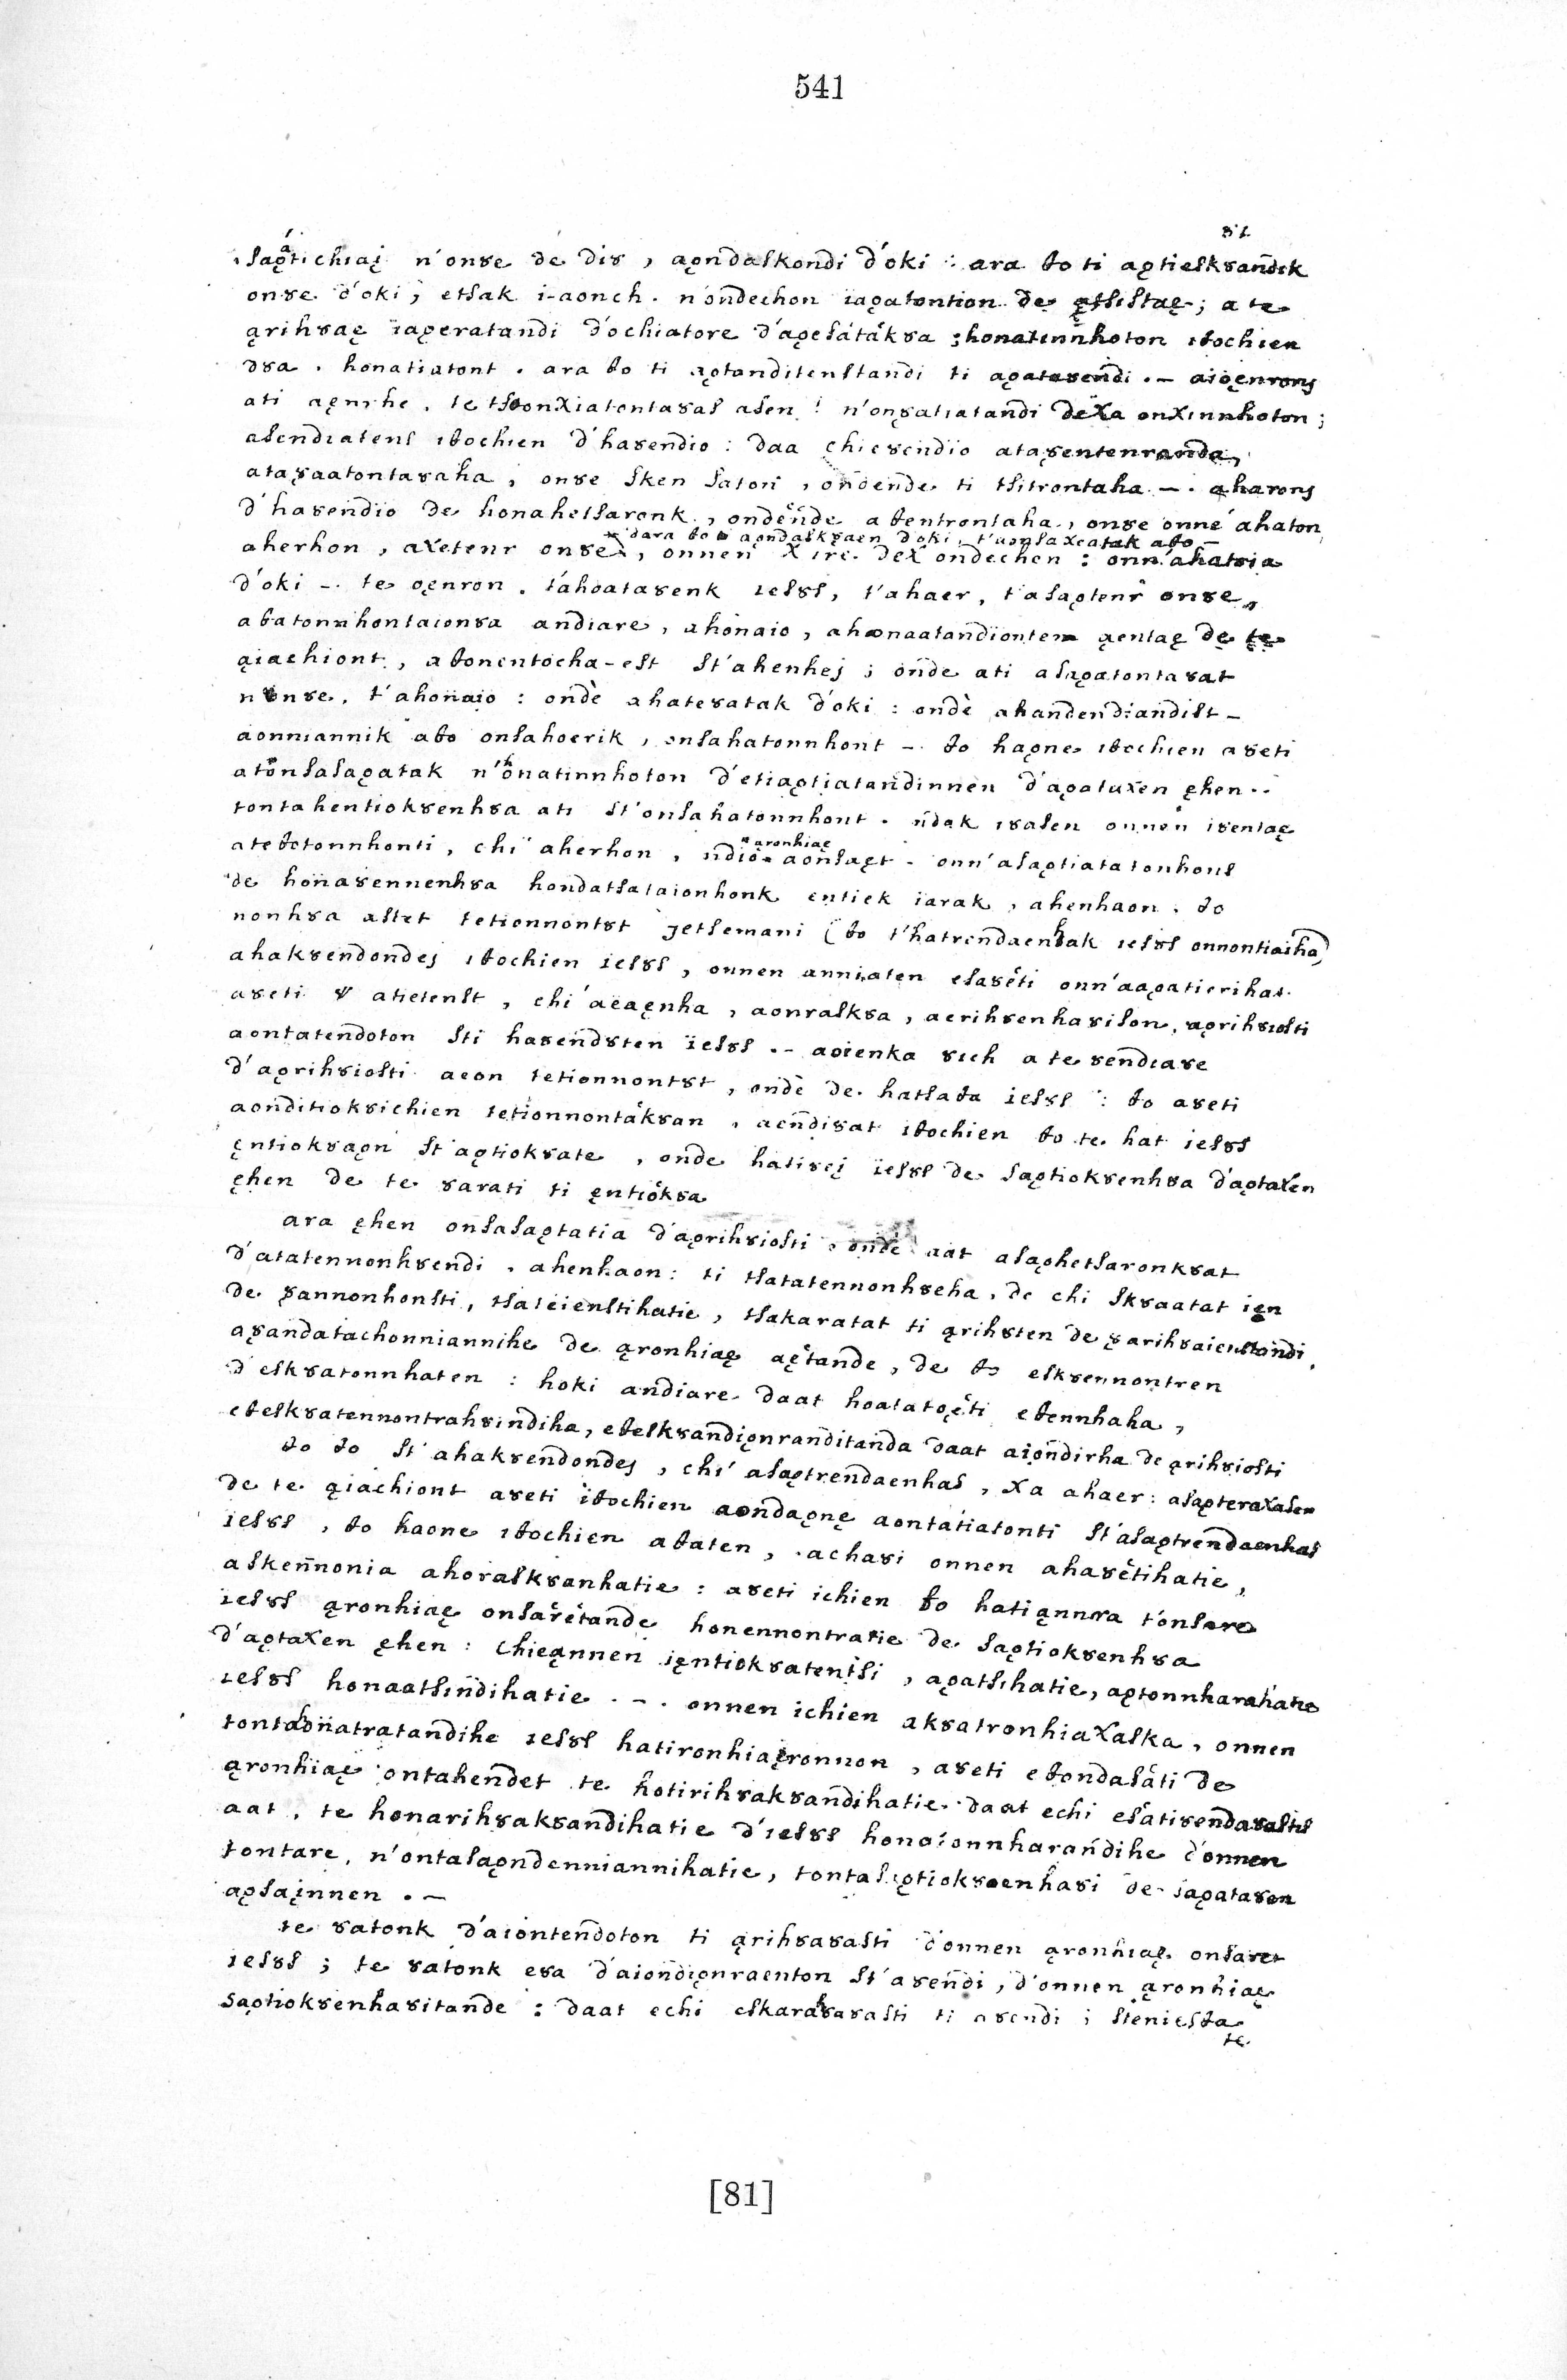 541
81.
saątichiaį n'onȣe de diȣ, aǫndaskondi d'oki : ara ȣo ti aǫtieskȣandik
onȣe d'oki ; etsak i-aonch. n'ondechon iaǫatontion de ; a te
ąrihȣaę iaǫeratandi d'ochiatore d'aǫesátákȣa ; honatinnhoton itochien
dȣa . honatiatont . ara to ti aǫtanditenstandi ti . -
ati . n'onǫatiatandi onxinnhoton ;
asendiatens itochien d'haȣendio : daa chieȣendio
ataǫaatontaȣaha , onȣe sken saton , ondende ti tsitrontaha - . aharonȷ
d'haȣendio de honahetsaronk , ondende atentrontaha , onȣe onne ahaton
dara to aǫndaskȣaen d'oki , t'aonsaxeatak ato -
aherhon , axetenr onȣe , onnen x ire. dex ondechen : onn'ahatȣia
d'oki - te oęnron . táhoataȣenk iesȣs , t'ahaer , t'asaǫtenr onȣe ,
atatonnhontaionȣa andiare , ahonaio , ahonaatandionten ąentaę de te
ąiachiont , atonentocha-est st'ahenheȷ ; onde ati asaǫatontaȣat
n'onȣe . t'ahonaio :ondè ahateȣatak d'oki : ondè ahandendiandist -
aonniannik ato onsahoerik , onsahatonnhont - . to haǫne itochien aȣeti
atonsasaǫatak n'honatinnhoton d'etiaǫtiatandinnen d'aǫataxen ęhen . .
tontahentiokȣenhȣa ati st'onsahatonnhont . ndak iȣasen onnen iȣentaę
atetotonnhonti , chi aherhon , ndio aonsaęt . onn'asaǫtiatatonhous
aronhiaę
de honaȣennenhȣa hondatsataionhonk entiek iarak , ahenhaon . to
nonhȣa astet tetionnontȣt jetsemani (to t'hatrendaenhak iesȣs onnontiaiha)
ahakȣendondeȷ itochien iesȣs , onnen anniaten esaȣéti onn'aaǫatierihat .
aȣeti atietenst , chi aeaęnha , aonraskȣa , aerihȣenhaȣison , aǫrihȣiosti
aontatendoton sti haȣendȣten iesȣs . - aoienka ȣich a te ȣendiaȣe
d'aǫrihȣiosti aeon tetionnontȣt , ondè de hatsata iesȣs : to aȣeti
aonditiokȣichien tetionnontákȣan , aendiȣat itochien to te hat iesȣs
ęntiokȣaǫn st'aǫtiokȣate , onde hatiȣeį iesȣs de saǫtiokȣenhȣa d'aǫtaxen
ęhen de te ȣarati ti ęntiokȣa
ara ęhen onsasaǫtatia d'aǫrihȣiosti , onde aat asaǫhetsaronkȣat
d'atatennonhȣendi . ahenhaon : ti tsatatennonhȣeha , de chi skȣaatat ięn
de ȣannonhonsti , tsateienstihatie , tsakaratat ti ąrihȣten de ȣarihȣaienstandi ,
aȣandatachonniannihe de ąronhiaę aętande , de to eskȣennontren
d'eskȣatonnhaten : hoki andiare daat hoatatoęti etennhaha ,
eteskȣatennontrahȣindiha , eteskȣandiǫnranditanda daat aiondirha de ąrihȣiosti
to to st'ahakȣendondeȷ , chi asaǫtrendaenhas , xa ahaer : asaǫteraxasen
de te ąiachiont aȣeti itochien aondaǫnę aontátiatonti st'asaǫtrendaenhas
iesȣs , to haone itochien ataten , . achaȣi onnen ahaȣétihatie ,
askennonia ahoraskȣanhatie : aȣeti ichien to hatiąnnra t'onsare
iesȣs ąronhiaę onsaretande honennontratie de saǫtiokȣenhȣa
d'aǫtaxen ęhen : chieąnnen ięntiokȣatentsi , aǫatsihatie , aǫtonnharahatie
iesȣs honaatsindihatie . - . onnen ichien akȣatronhiaxaska , onnen
tontahonatratandihe iesȣs hatironhiaęronnon , aȣeti etondasati de
ąronhiaę ontahendet te hotirihȣakȣandihatie daat echi esatiȣendaȣastis
aat , te honarihȣakȣandihatie d'iesȣs honaionnharandihe d'onnen
tontare , n'ontasaǫndenniannihatie , tontasaǫtiokȣenhaȣi de saǫataȣan
aǫsaįnnen . -
te ȣatonk d'aiontendoton ti ąrihȣaȣasti d'onnen ąronhiaę onsaret
iesȣs ; te ȣatonk eȣa d'aiondiǫnraenton st'aȣendi , d'onnen ąronhiaę
saǫtiokȣenhaȣitande : daat echi eskarihȣaȣasti ti aȣendi ; steniesta
te
[81]